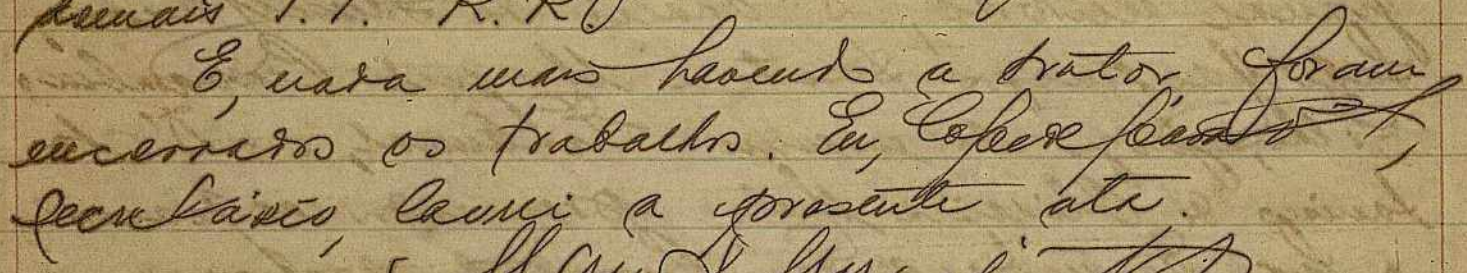 demais T. T. R. R.
E, nada mais havendo a tratar, foram
encerrados os trabalhos. Eu,
secretário, lavrei a presente ata.